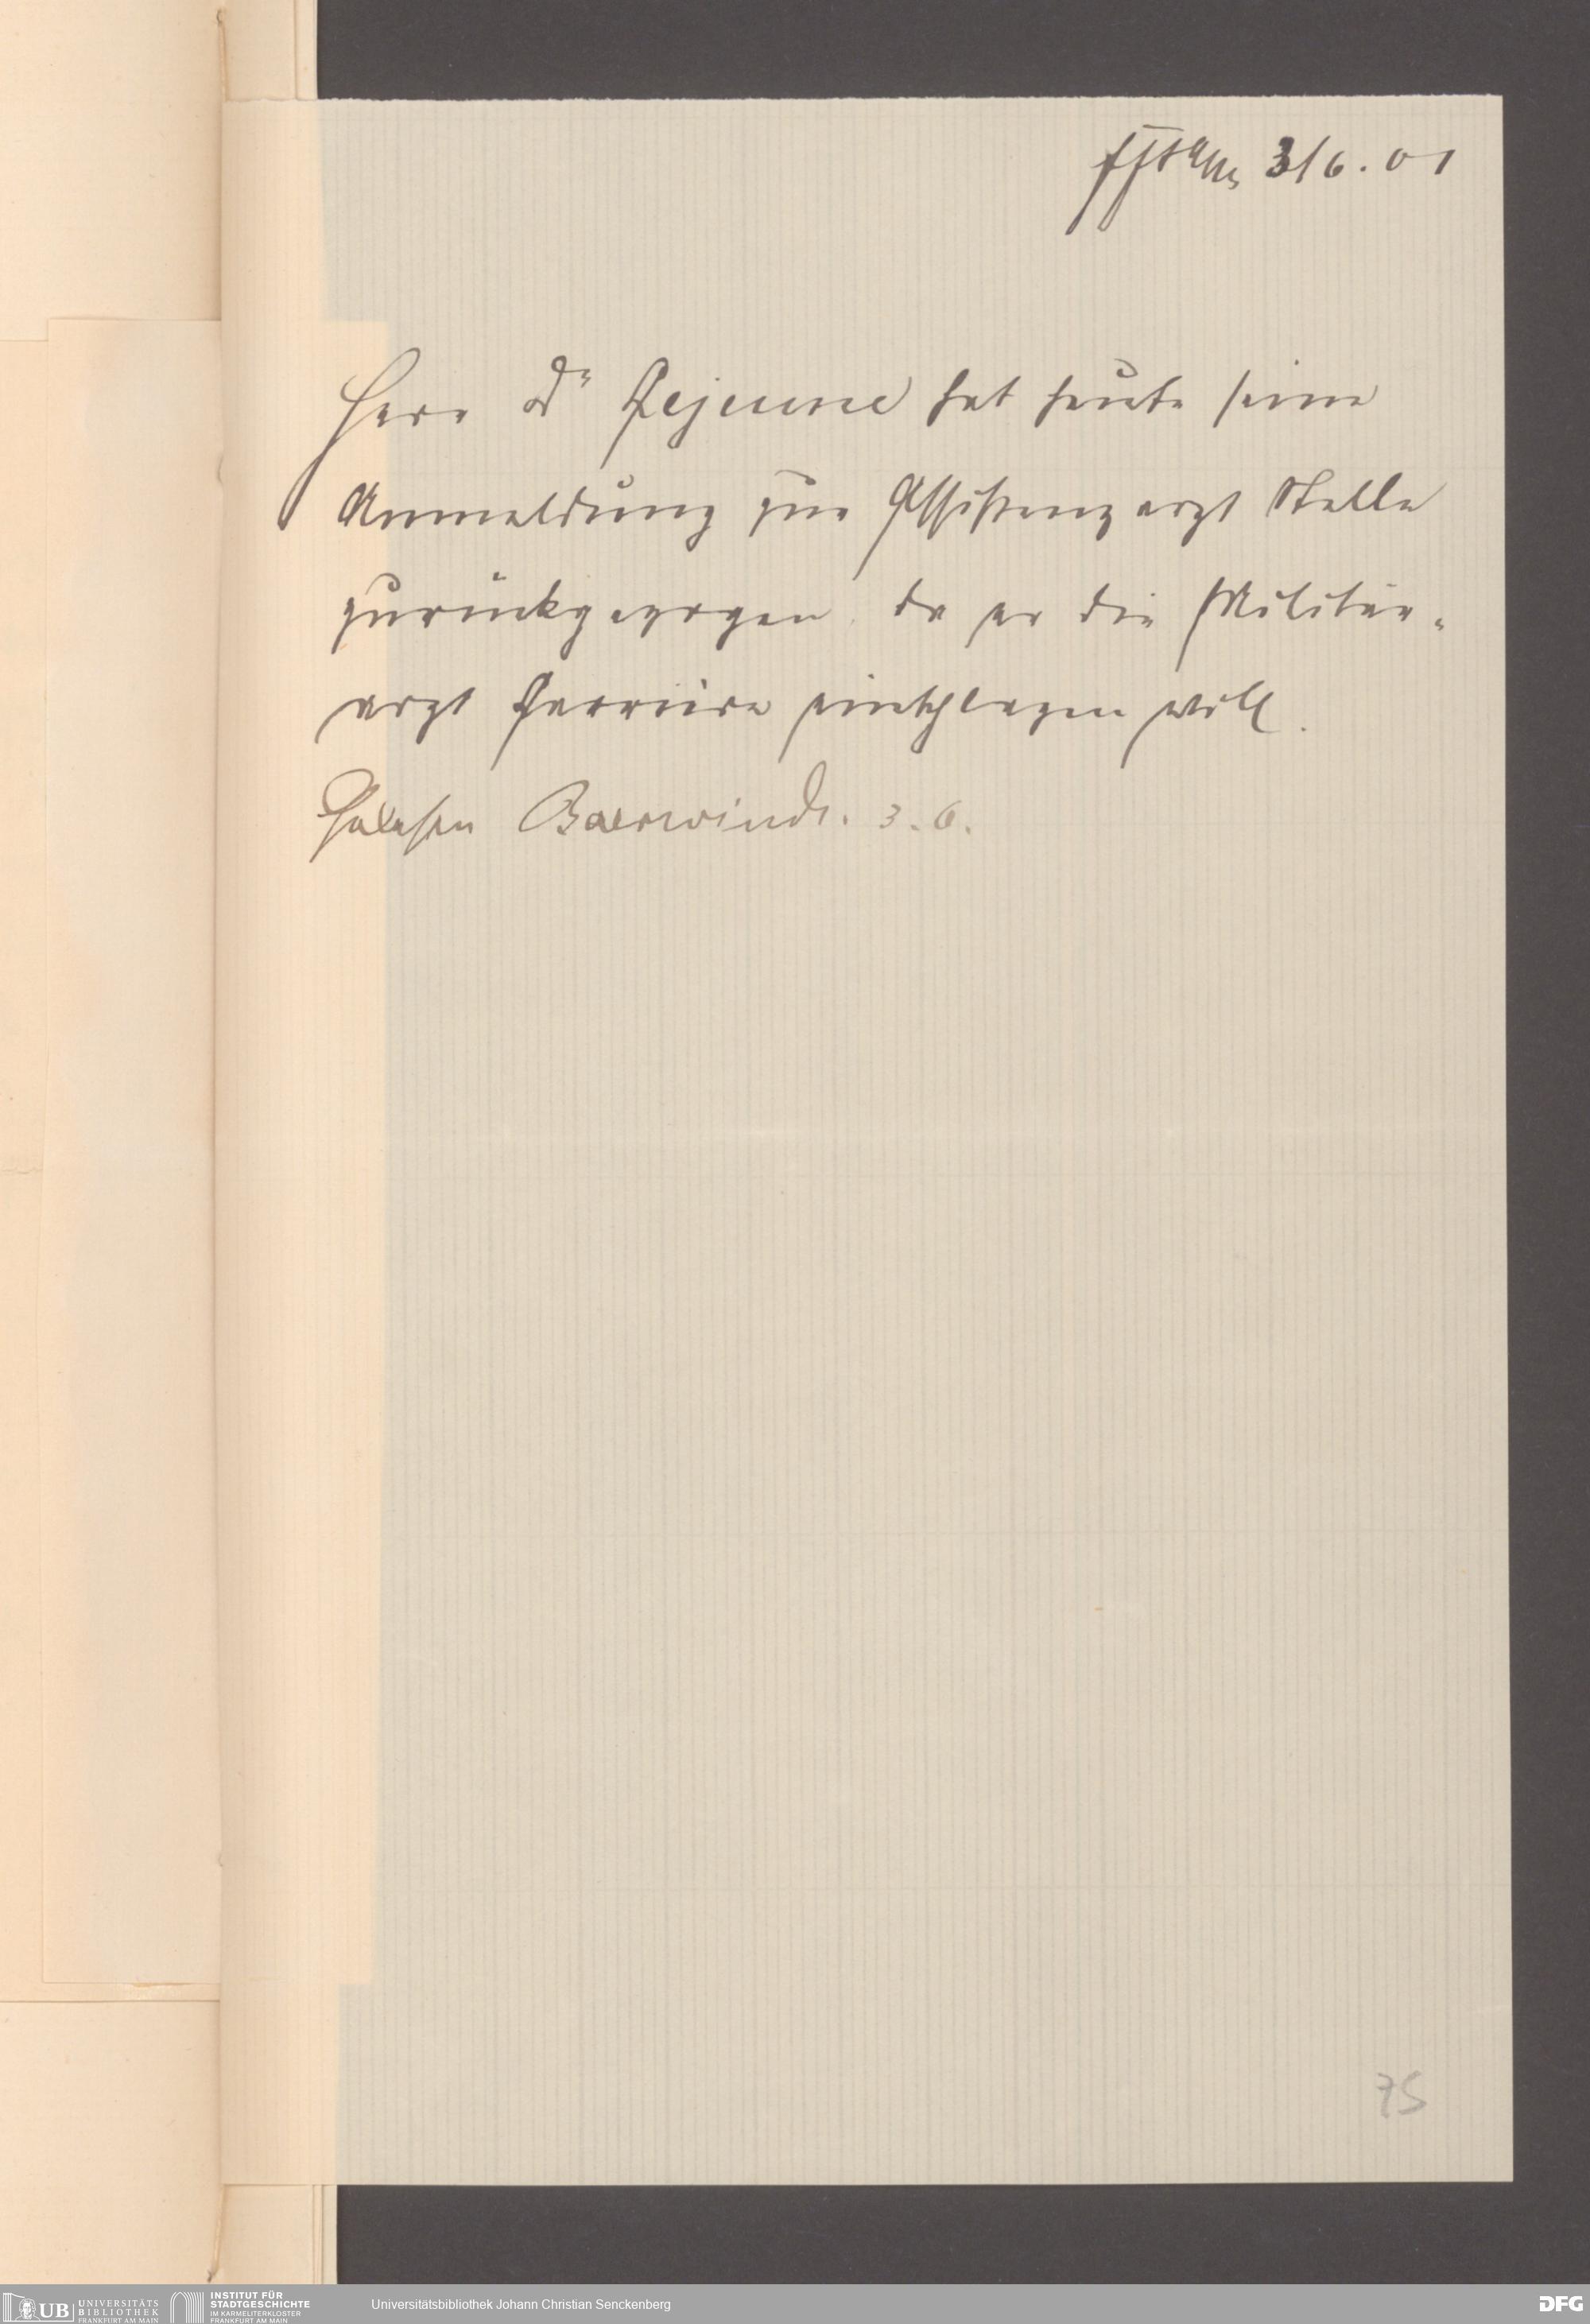 3/6. 01
Herr Dr Lejeune hat heute seine
Anmeldung zur Assistenzarzt Stelle
zurückgezogen, da er die Militär-
arzt Carrière einschlagen will.
Gelesen Baerwindt. 3. 6.
75
UB UNIVERSITÄTS
BIBLIOTHEK
FRANKFURT AM MAIN
INSTITUT FÜR
STADTGESCHICHTE
IM KARMELITERKLOSTER
FRANKFURT AM MAIN
Universitätsbibliothek Johann Christian Senckenberg
DFG